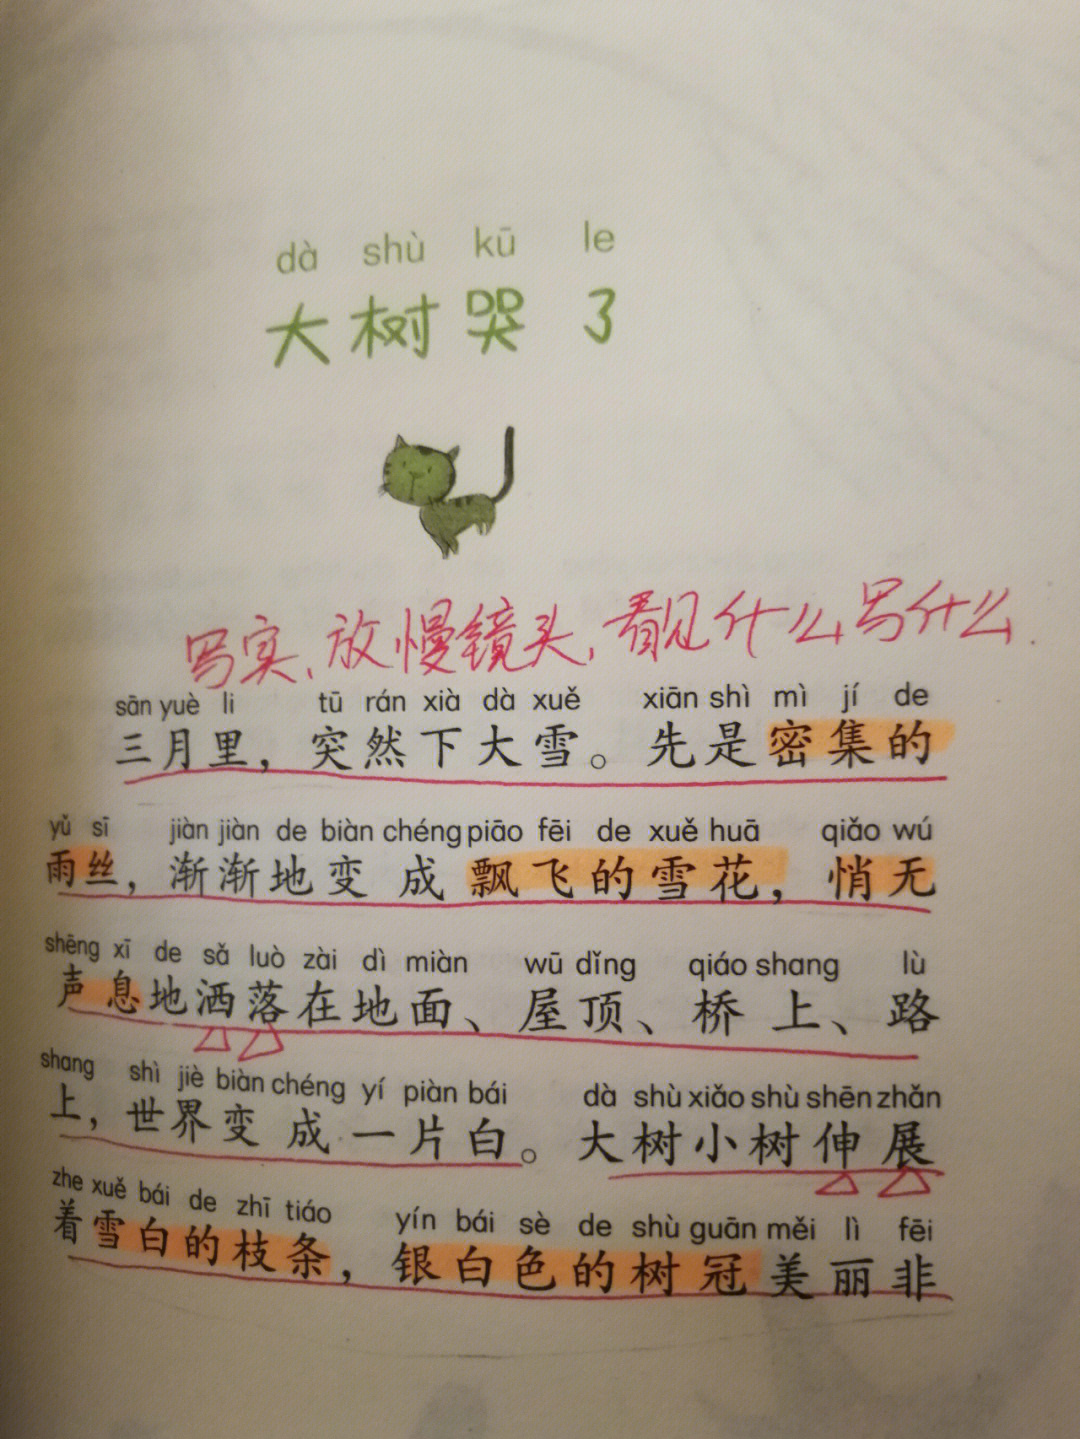 dà shù kū le
大树哭了
写实、放慢镜头,看见什么写什么.
sān yuè li tū rán xià dà xuě xiān shì mì jí de
三月里，突然下大雪。先是密集的
yǔ sī jiàn jiàn de biàn chéng piāo fēi de xuě huā qiǎo wú
雨丝，渐渐地变成飘飞的雪花，悄无
shēng xī de sǎ luò zài dì miàn wū dǐng qiáo shang lù
声息地洒落在地面、屋顶、桥上、路
shang shì jiè biàn chéng yí piàn bái dà shù xiǎo shù shēn zhǎn
上，世界变成一片白。大树小树伸展
zhe xuě bái de zhī tiáo yín bái sè de shù guān měi lì fēi
着雪白的枝条，银白色的树冠美丽非